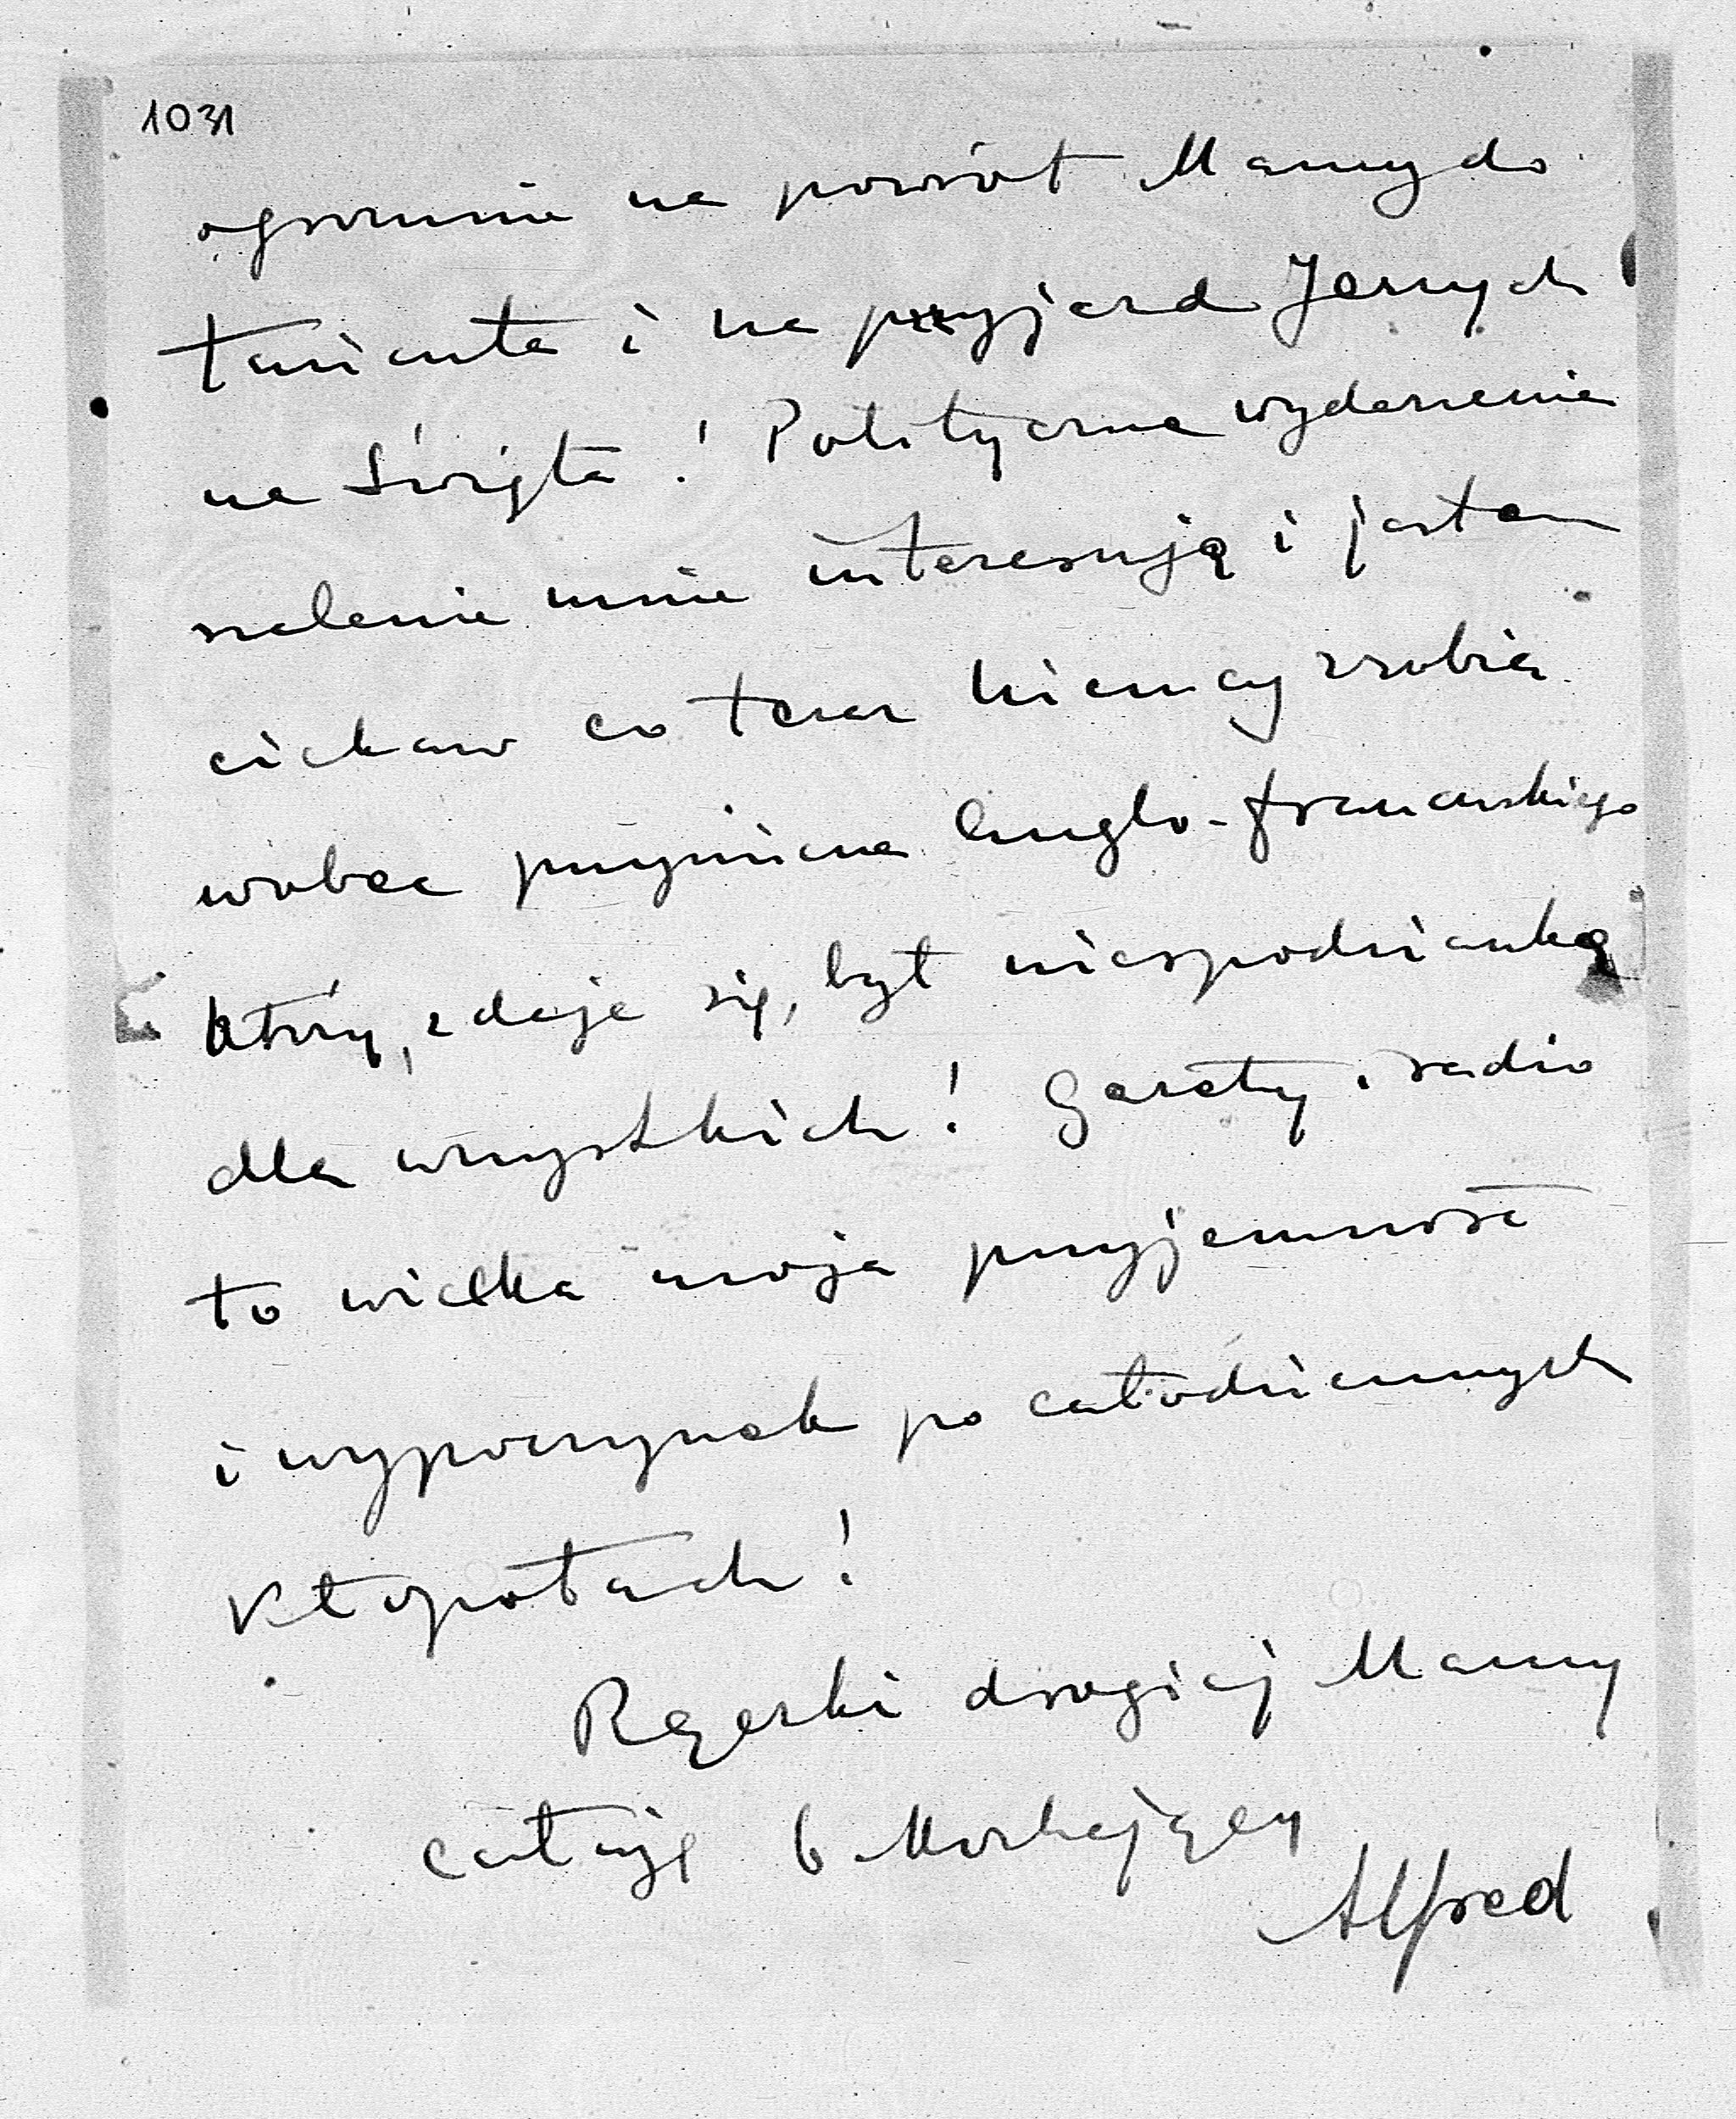 1031
ogromnie na powrót Mamy do
Łańcuta i na przyjazd Jerzych
na Święta! Polityczne wydarzenia
szalenie mnie interesują i jestem
ciekaw co teraz Niemcy zrobią
wobec przymierza Anglo-francuskiego
który, zdaje się, był niespodzianką
dla wszystkich! Gazety i radio
to wielka moja przyjemność
i wypoczynek po całodziennych
kłopotach!
Rączki drogiej Mamy
całuję b. kochający
Alfred